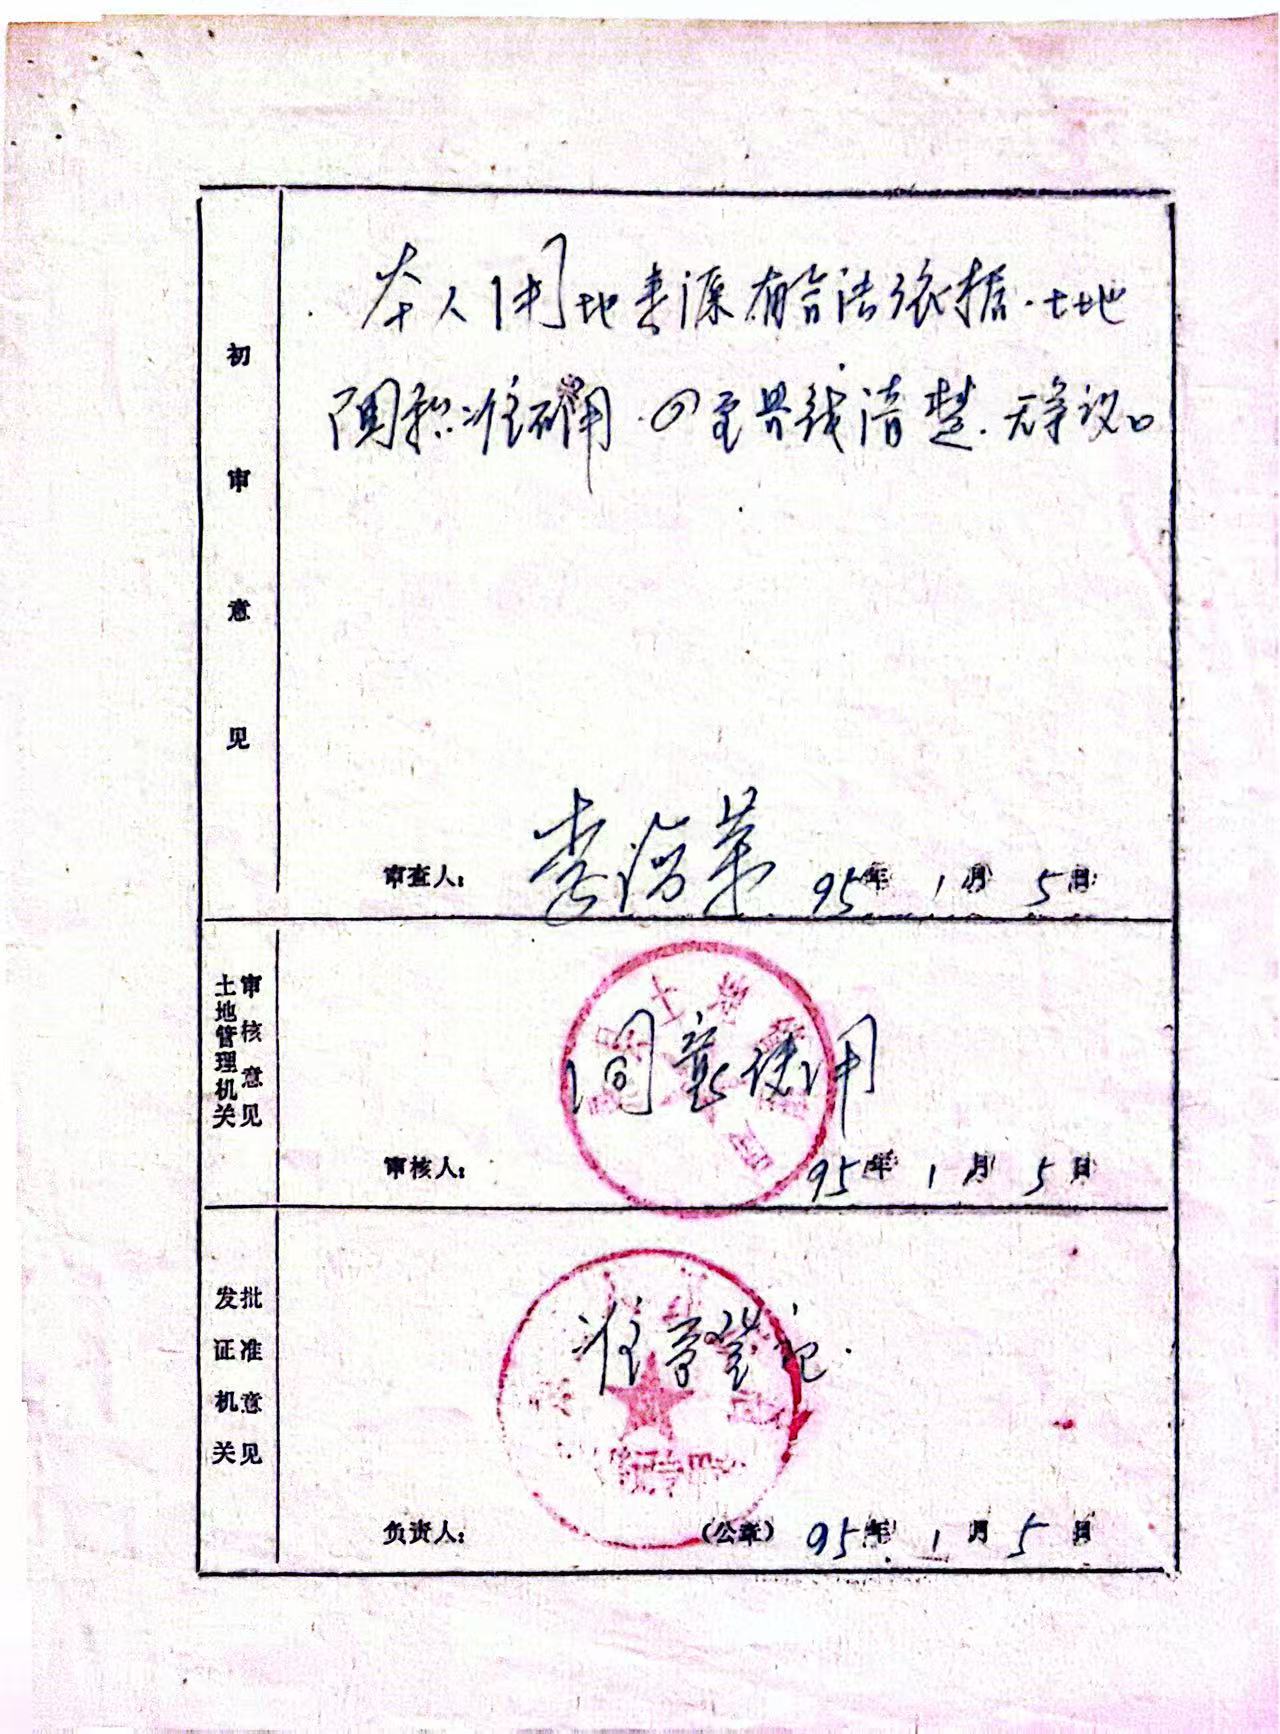 初审意见
本人用地来源有合法依据.土地
面积准确.四至界线清楚.无争议。
审查人： 95年1月5日
土地管理机关审核意见
同意使用
审核人： 95年1月5日
发证机关批准意见
准予登记.
负责人： （公章） 95年1月5日